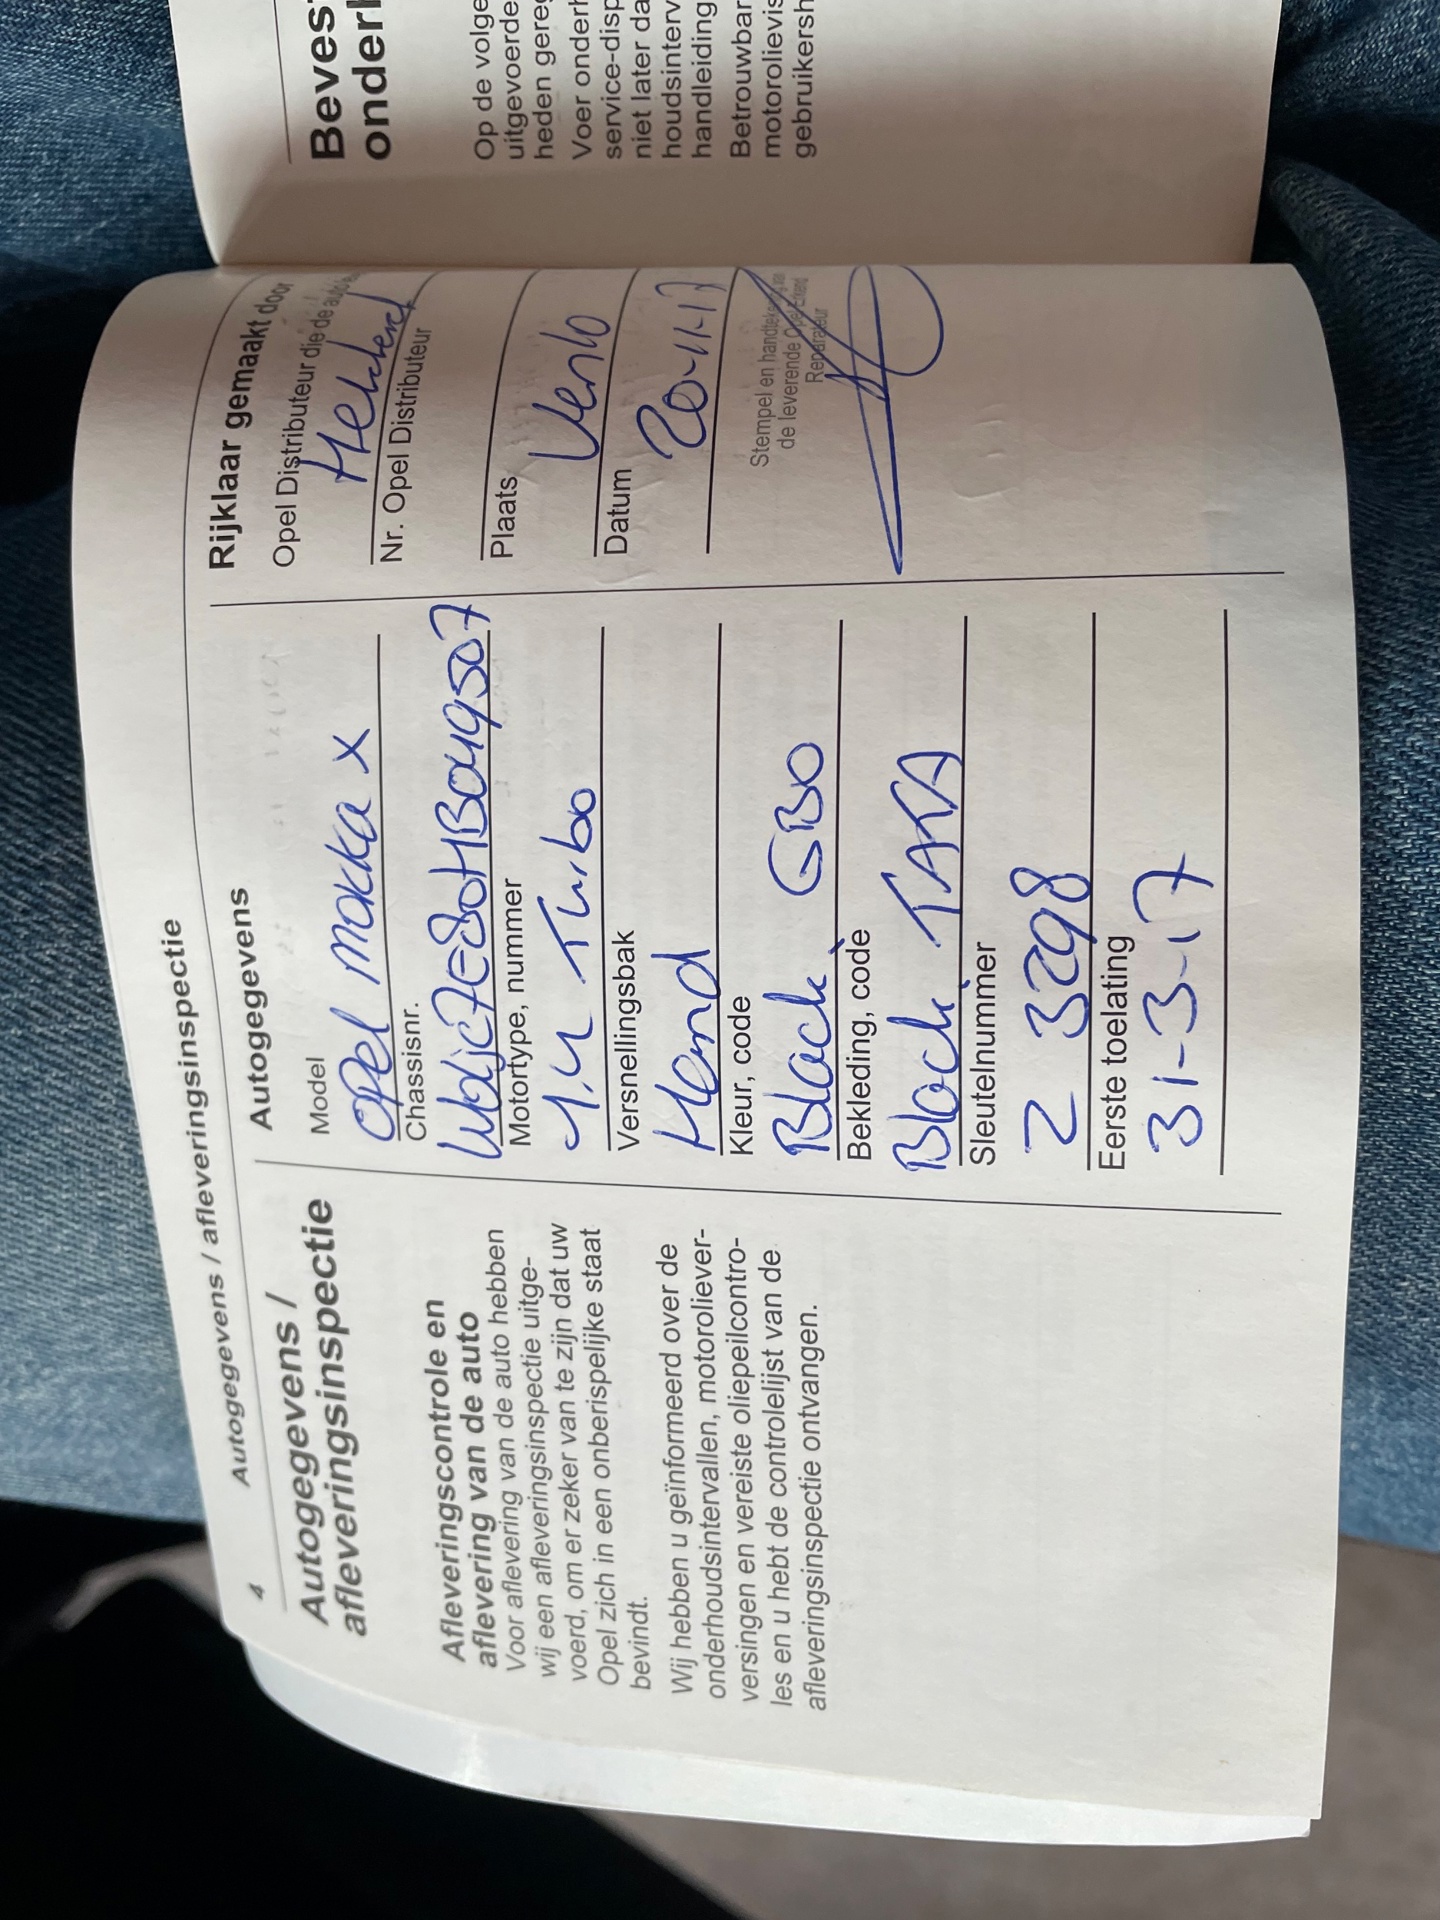 4
Autogegevens / afleveringsinspectie
Autogegevens /
afleveringsinspectie
Afleveringscontrole en
aflevering van de auto
Voor aflevering van de auto hebben
wij een afleveringsinspectie uitge-
voerd, om er zeker van te zijn dat uw
Opel zich in een onberispelijke staat
bevindt.
Wij hebben u geïnformeerd over de
onderhoudsintervallen, motoroliever-
versingen en vereiste oliepeilcontro-
les en u hebt de controlelijst van de
afleveringsinspectie ontvangen.
Autogegevens
Model
Opel Mokka X
Chassisnr.
Motortype, nummer
1.4 Turbo
Versnellingsbak
Hand
Kleur, code
Black GBO
Bekleding, code
Black TATA
Sleutelnummer
Z 3298
Eerste toelating
31-3-17
Rijklaar gemaakt door
Opel Distributeur die de auto
Nr. Opel Distributeur
Plaats
Venlo
Datum
20-11-17
Stempel en handtekening van
de leverende Opel Erkend
Reparateur
Beves
onderh
Op de volge
uitgevoerde
heden gereg
Voer onderh
service-disp
niet later da
houdsinterv
handleiding
Betrouwbar
motorolievis
gebruikersh